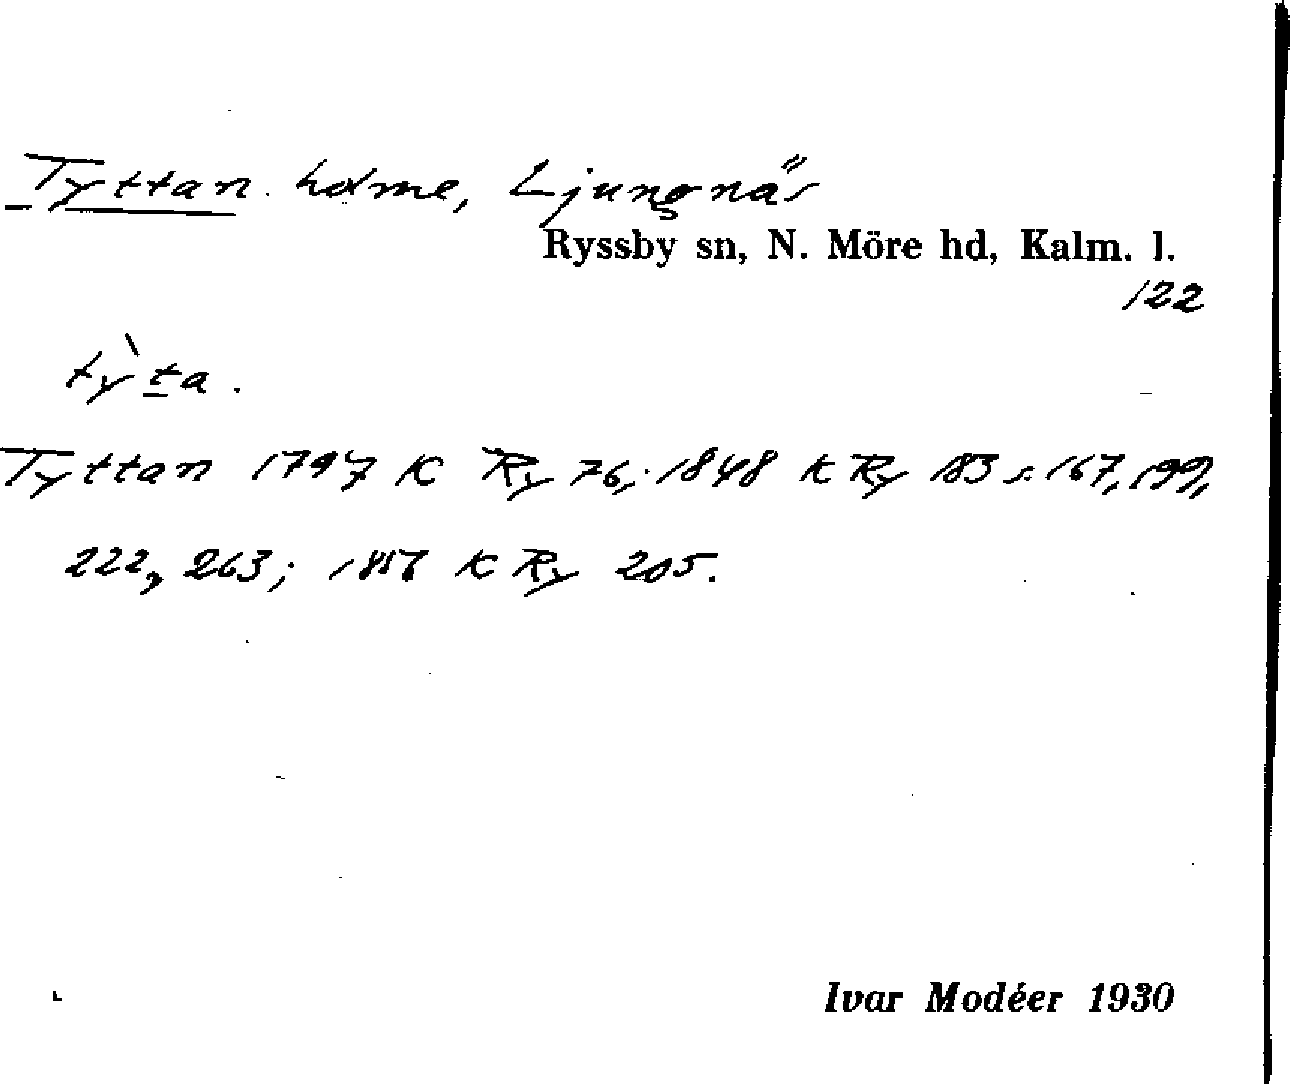 Tyttan holme, Ljungnäs
Ryssby sn, N. Möre hd, Kalm. l.
122
tỳta.
Tyttan 1797 K Ry 76; 1848 K Ry 183 s. 167, 199,
222, 263; K Ry 205.
Ivar Modéer 1930